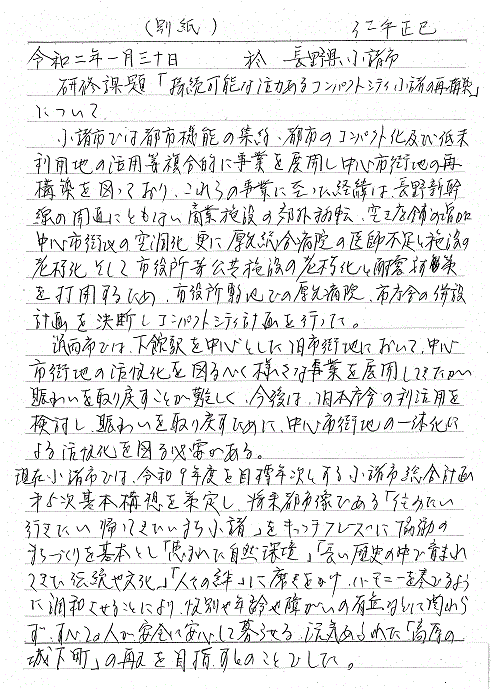 (別紙)
仁平正巳
令和二年一月三十日 於 長野県小諸市
研修課題「持続可能な活力あるコンパクトシティ小諸の再構築」
について
小諸市では都市機能の集約、都市のコンパクト化及び低未
利用地の活用等複合的に事業を展開し中心市街地の再
構築を図っており、これらの事業に至った経緯は、長野新幹
線の開通にともない商業施設の郊外移転、空き店舗の増加
中心市街地の空洞化、更に厚生総合病院の医師不足と施設の
老朽化、そして市役所等公共施設の老朽化と耐震対策
を打開するため、市役所敷地での厚生病院、市庁舎の併設
計画を決断しコンパクトシティ計画を行った。
筑西市では、下館駅を中心とした旧市街地において、中心
市街地の活性化を図るべく様々な事業を展開してきたが
賑わいを取り戻すことが難しく、今後は、旧本庁舎の利活用を
検討し、賑わいを取り戻すために、中心市街地の一体化に
よる活性化を図る必要がある。
現在小諸市では、令和9年度を目標年次とする小諸市総合計画
第5次基本構想を策定し、将来都市像である「住みたい
行きたい帰ってきたいまち小諸」をキャッチフレーズに協働の
まちづくりを基本とし「恵まれた自然環境」「長い歴史の中で育まれ
てきた伝統や文化」「人々の絆」に磨きをかけ、ハーモニーを奏でるよう
に調和させることにより、性別や年齢や障がいの有無などに関わら
ず、すべての人が安全に安心して暮らせる、活気あふれた「高原の
城下町」の再生を目指すとのことでした。